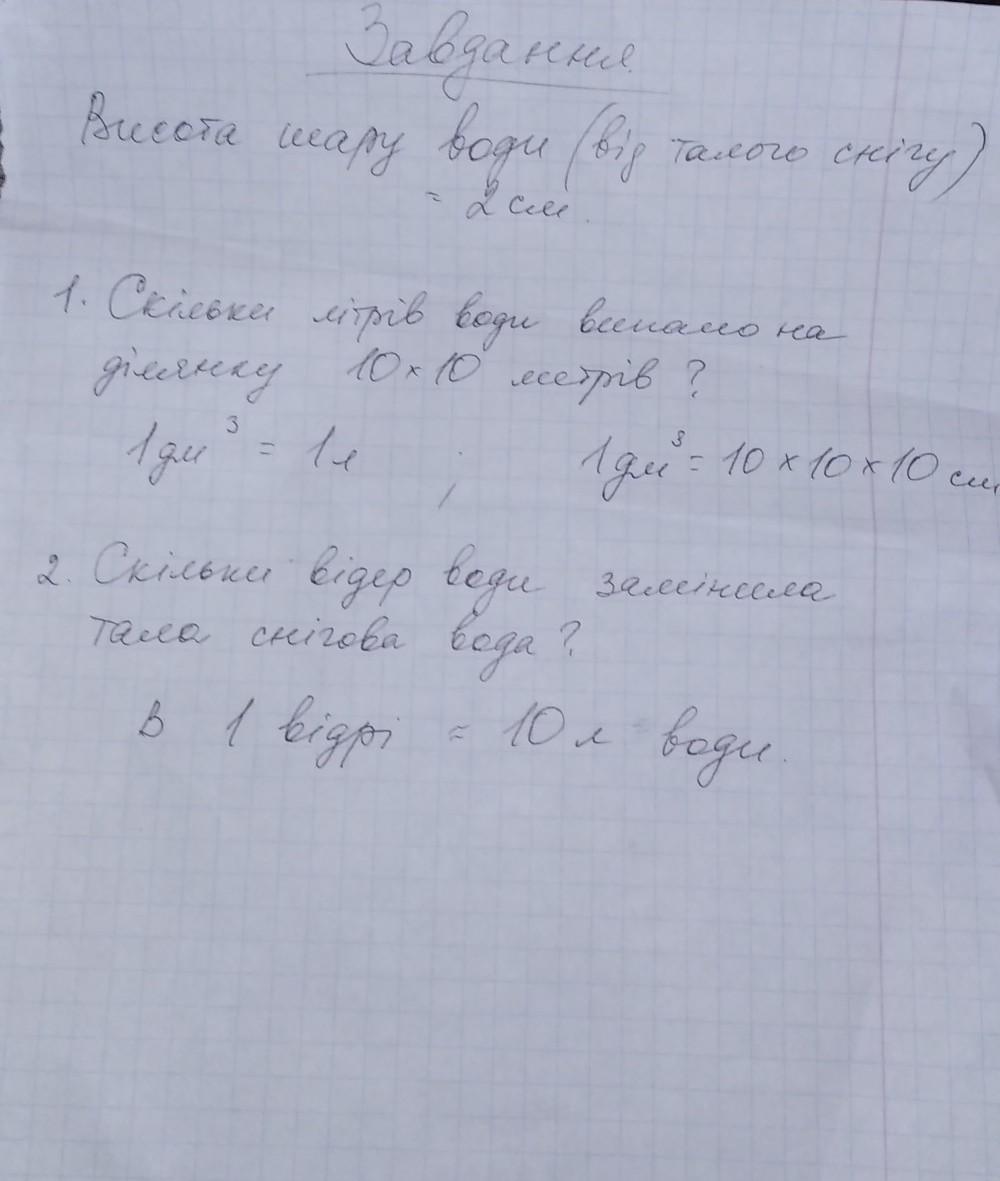 Завдання.
Висота шару води (від талого снігу)
= 2 см.
1. Скільки літрів води випало на
ділянку 10×10 метрів?
1 дм³ = 1 л ; 1 дм³ = 10 × 10 × 10 см
2. Скільки відер води замінила
тала снігова вода?
В 1 відрі = 10 л води.